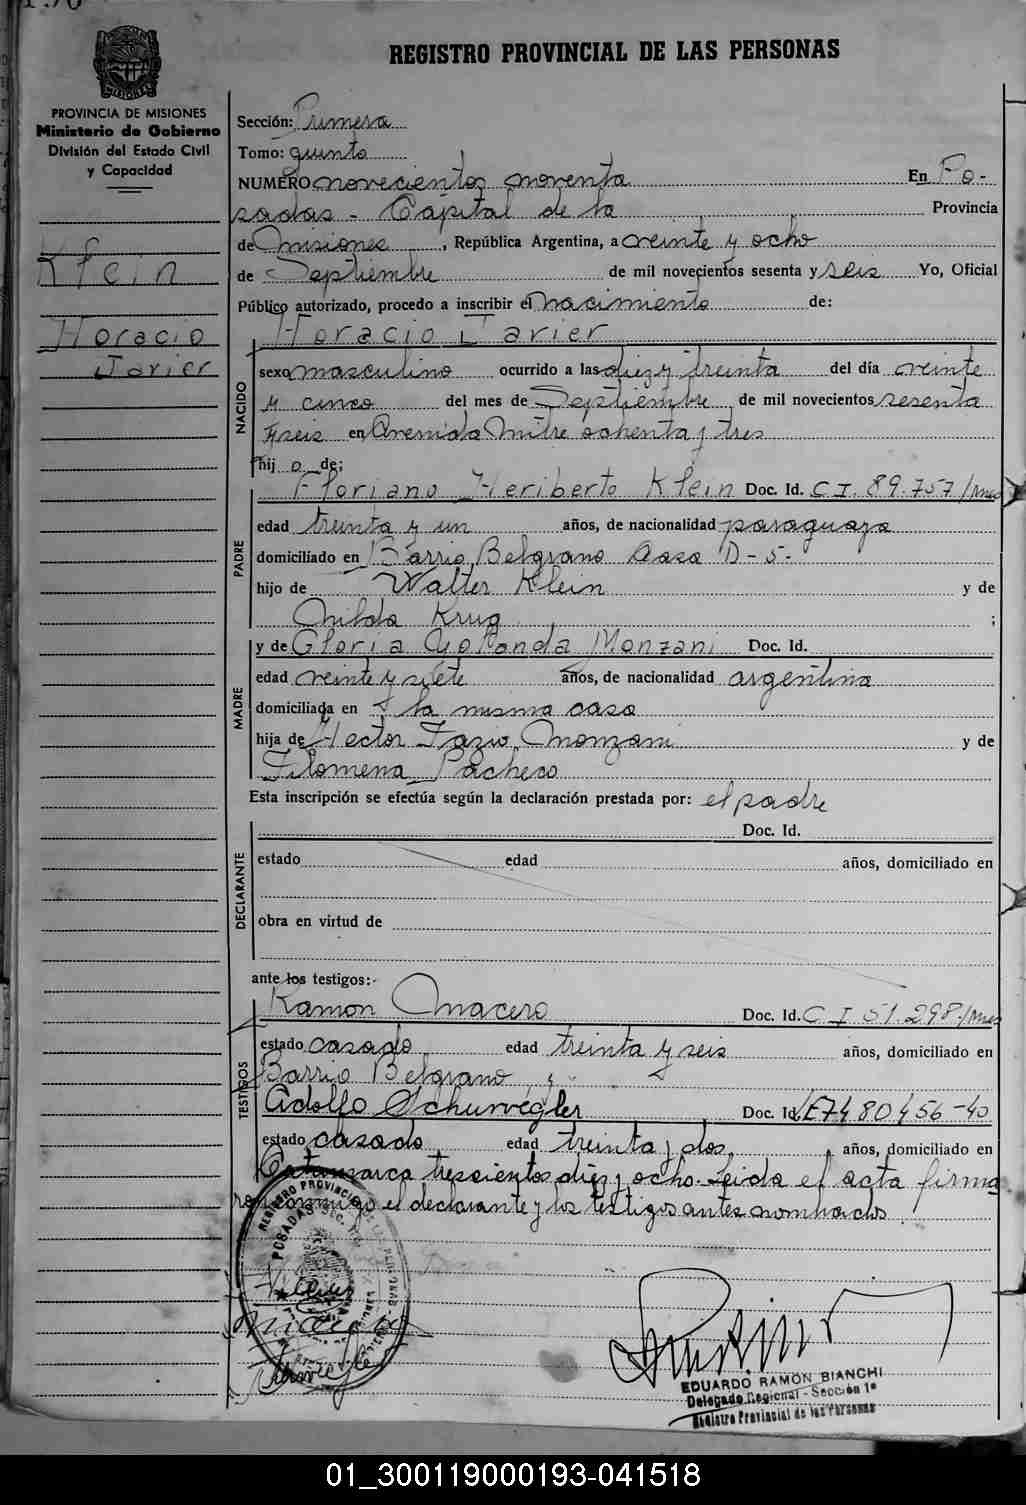 REGISTRO PROVINCIAL DE LAS PERSONAS
PROVINCIA DE MISIONES
Ministerio de Gobierno
División del Estado Civil
y Capacidad
Klein
Horacio
Javier
Sección: Primera
Tomo: quinto
NUMERO novecientos noventa En Po-
sadas - Capital de la Provincia
de Misiones, República Argentina, a veinte y ocho
de Septiembre de mil novecientos sesenta y seis Yo, Oficial
Público autorizado, procedo a inscribir el nacimiento de:
Horacio Javier
NACIDO
sexo masculino ocurrido a las diez y treinta del día veinte
y cinco del mes de Septiembre de mil novecientos sesenta
y seis en Avenida Mitre ochenta y tres
hijo de;
PADRE
Floriano Heriberto Klein Doc. Id. C I. 89.757/
edad treinta y un años, de nacionalidad paraguaya
domiciliado en Barrio Belgrano Casa D-5-
hijo de Walter Klein y de
Nilda Krug ;
MADRE
y de Gloria Yolanda Monzani Doc. Id.
edad veinte y siete años, de nacionalidad argentina
domiciliada en la misma casa
hija de Hector Monzani y de
Filomena Pacheco
Esta inscripción se efectúa según la declaración prestada por: el padre
DECLARANTE
Doc. Id.
estado edad años, domiciliado en
obra en virtud de
ante los testigos:-
TESTIGOS
Ramon Macero Doc. Id. C I 51.298/
estado casado edad treinta y seis años, domiciliado en
Barrio Belgrano y
Adolfo Doc. Id.
estado casado edad treinta y dos años, domiciliado en
Catamarca trescientos diez y ocho. Leida el acta firma
ron conmigo el declarante y los testigos antes nombrados
REGISTRO PROVINCIAL DE LAS PERSONAS
POSADAS
EDUARDO RAMON BIANCHI
Delegado Regional - Sección 1ª
Registro Provincial de las Personas
01_300119000193-041518